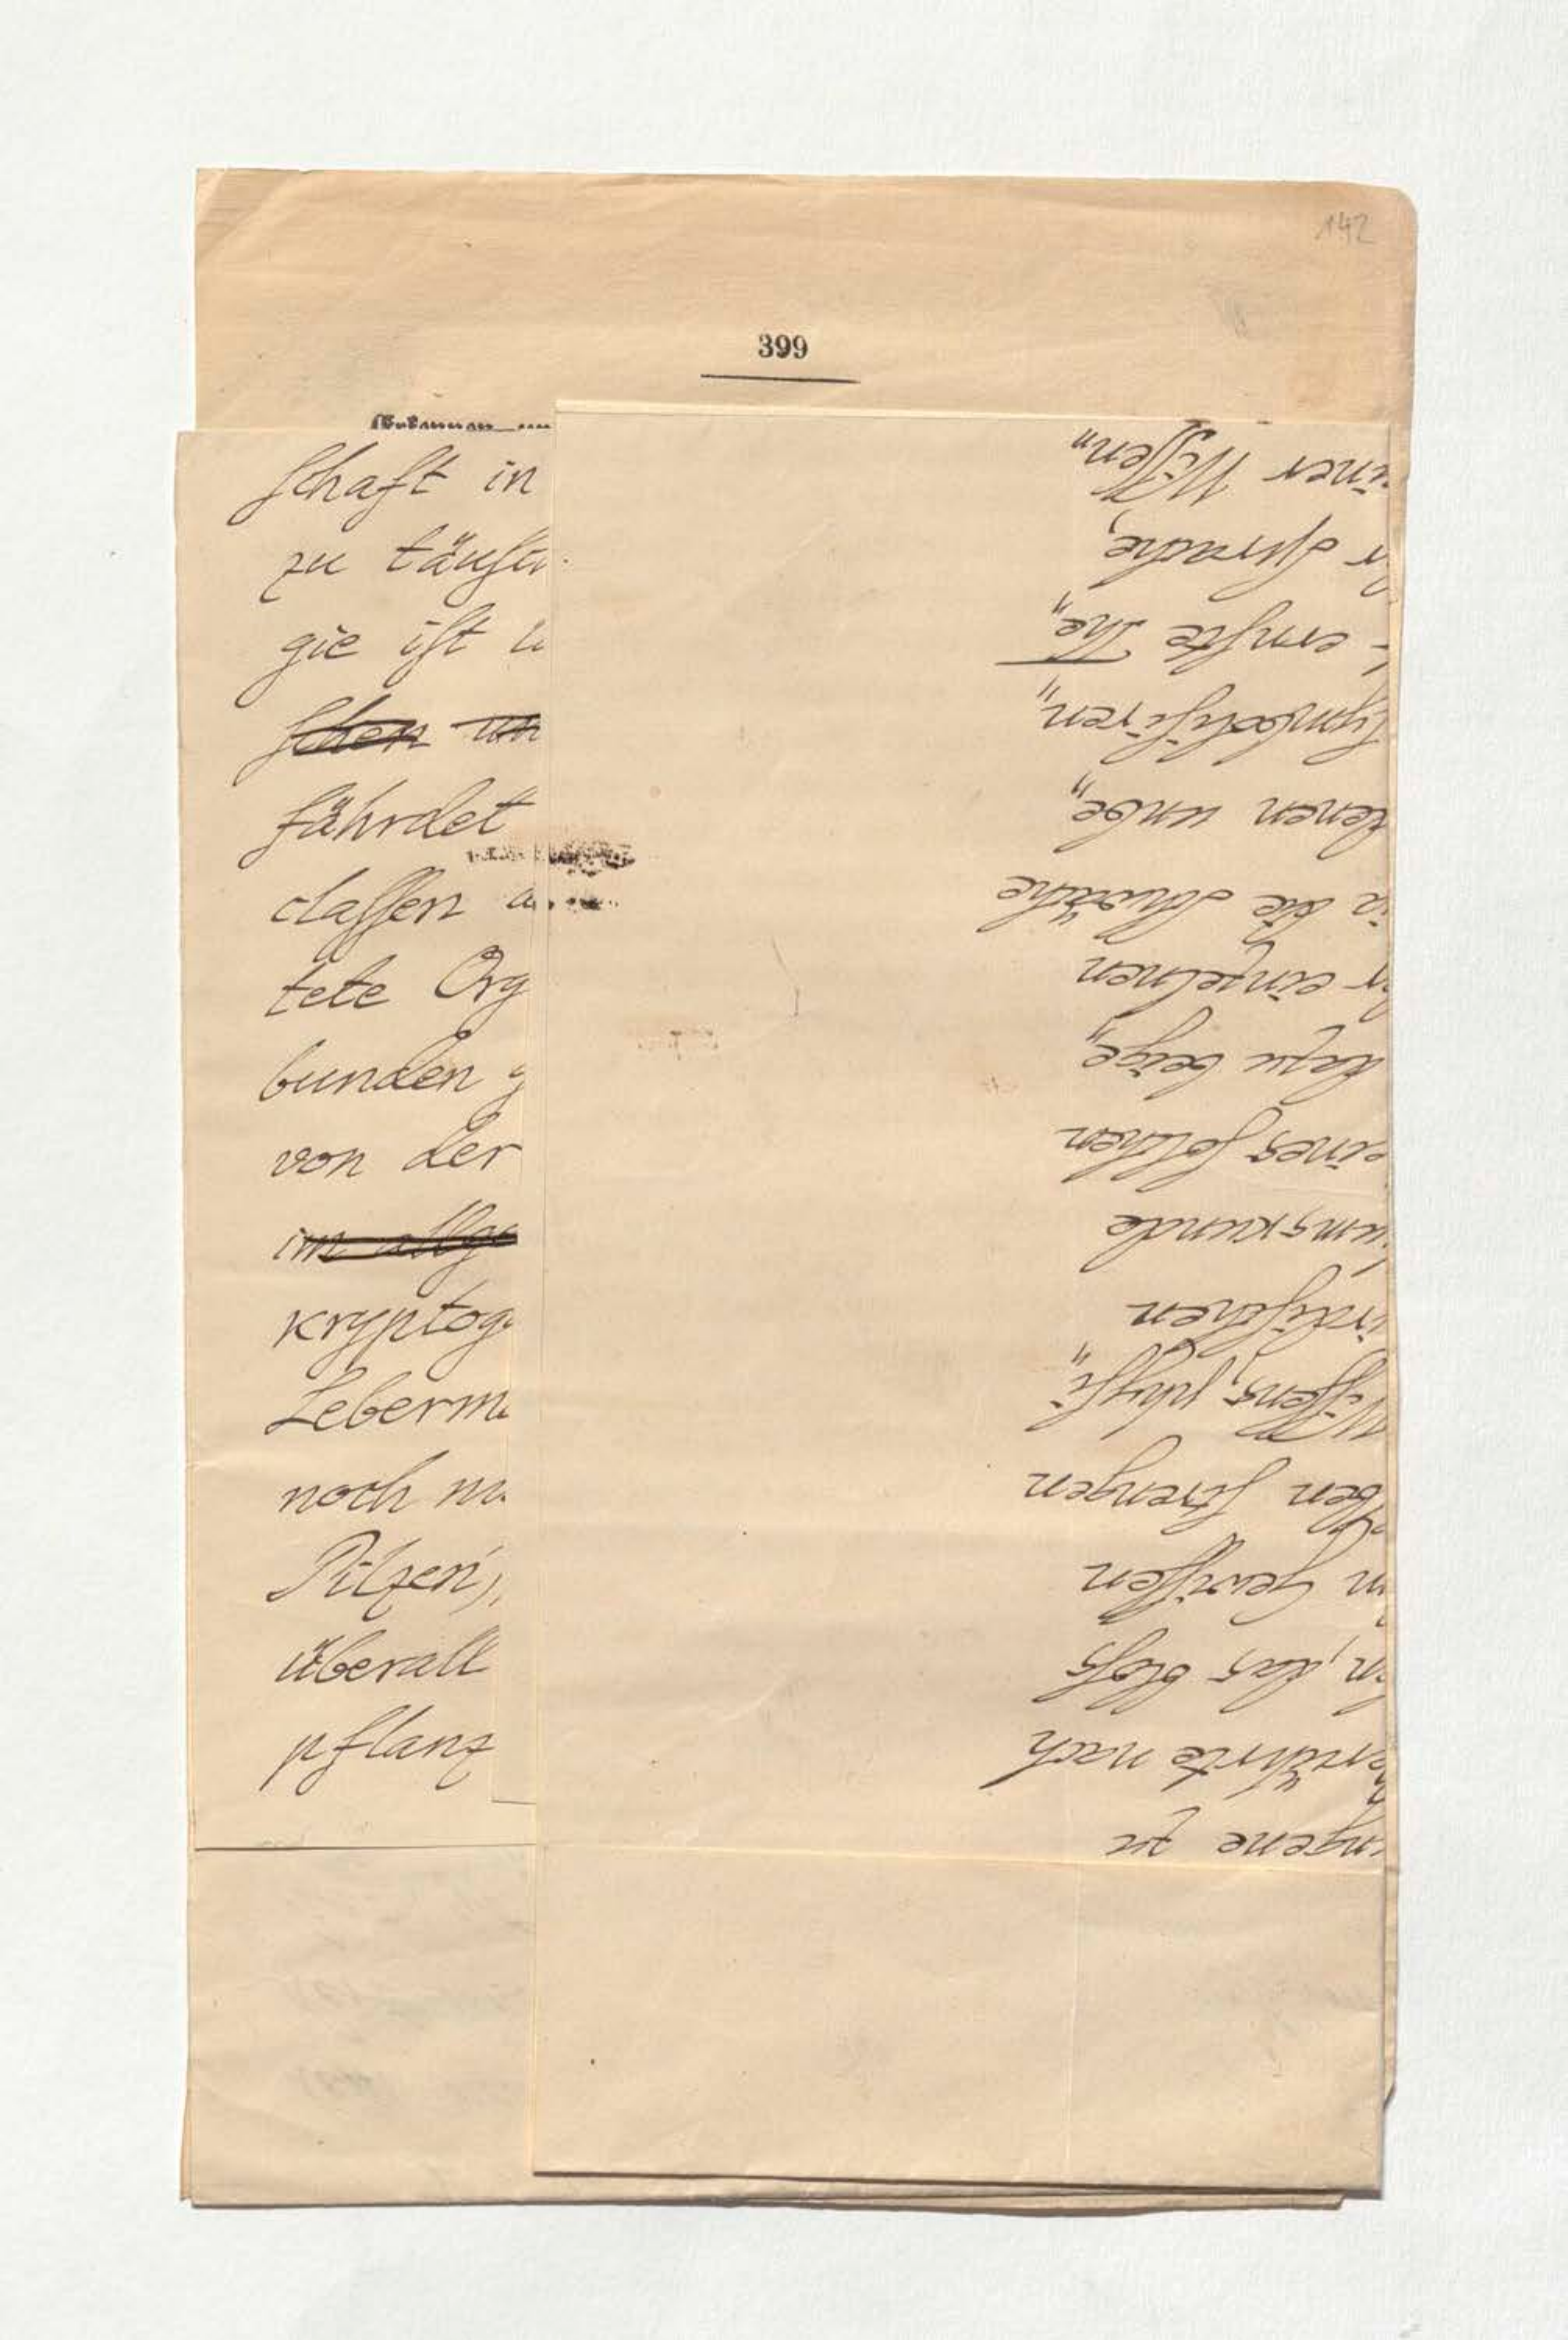 142
399
schaft in
zu täusch
gie ist u
schen un
fährdet
classen a
tete Org
bunden g
von der
im allge
kryptog
Leberm
noch n
Pilzen),
überall
pflanz
ngene zu
erührte nach
n, das bloss
n Gewissen
ben strengen
Wissens, physi„
irdischen
ungskunde
eines solchen
dazu beige„
er einzelnen
in die Schwäche
denen unbe„
symbolisiren„
ernste The„
r Sprache,
einer Wissen„